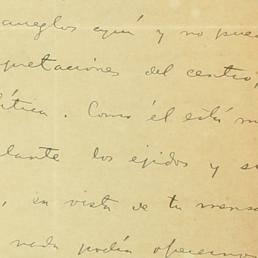 arreglos aquí y no pued
pretaciones del centro,
ítica. Como él está m
elante los ejidos y s
, en vista de tu mensa
nada podía ofrecernos